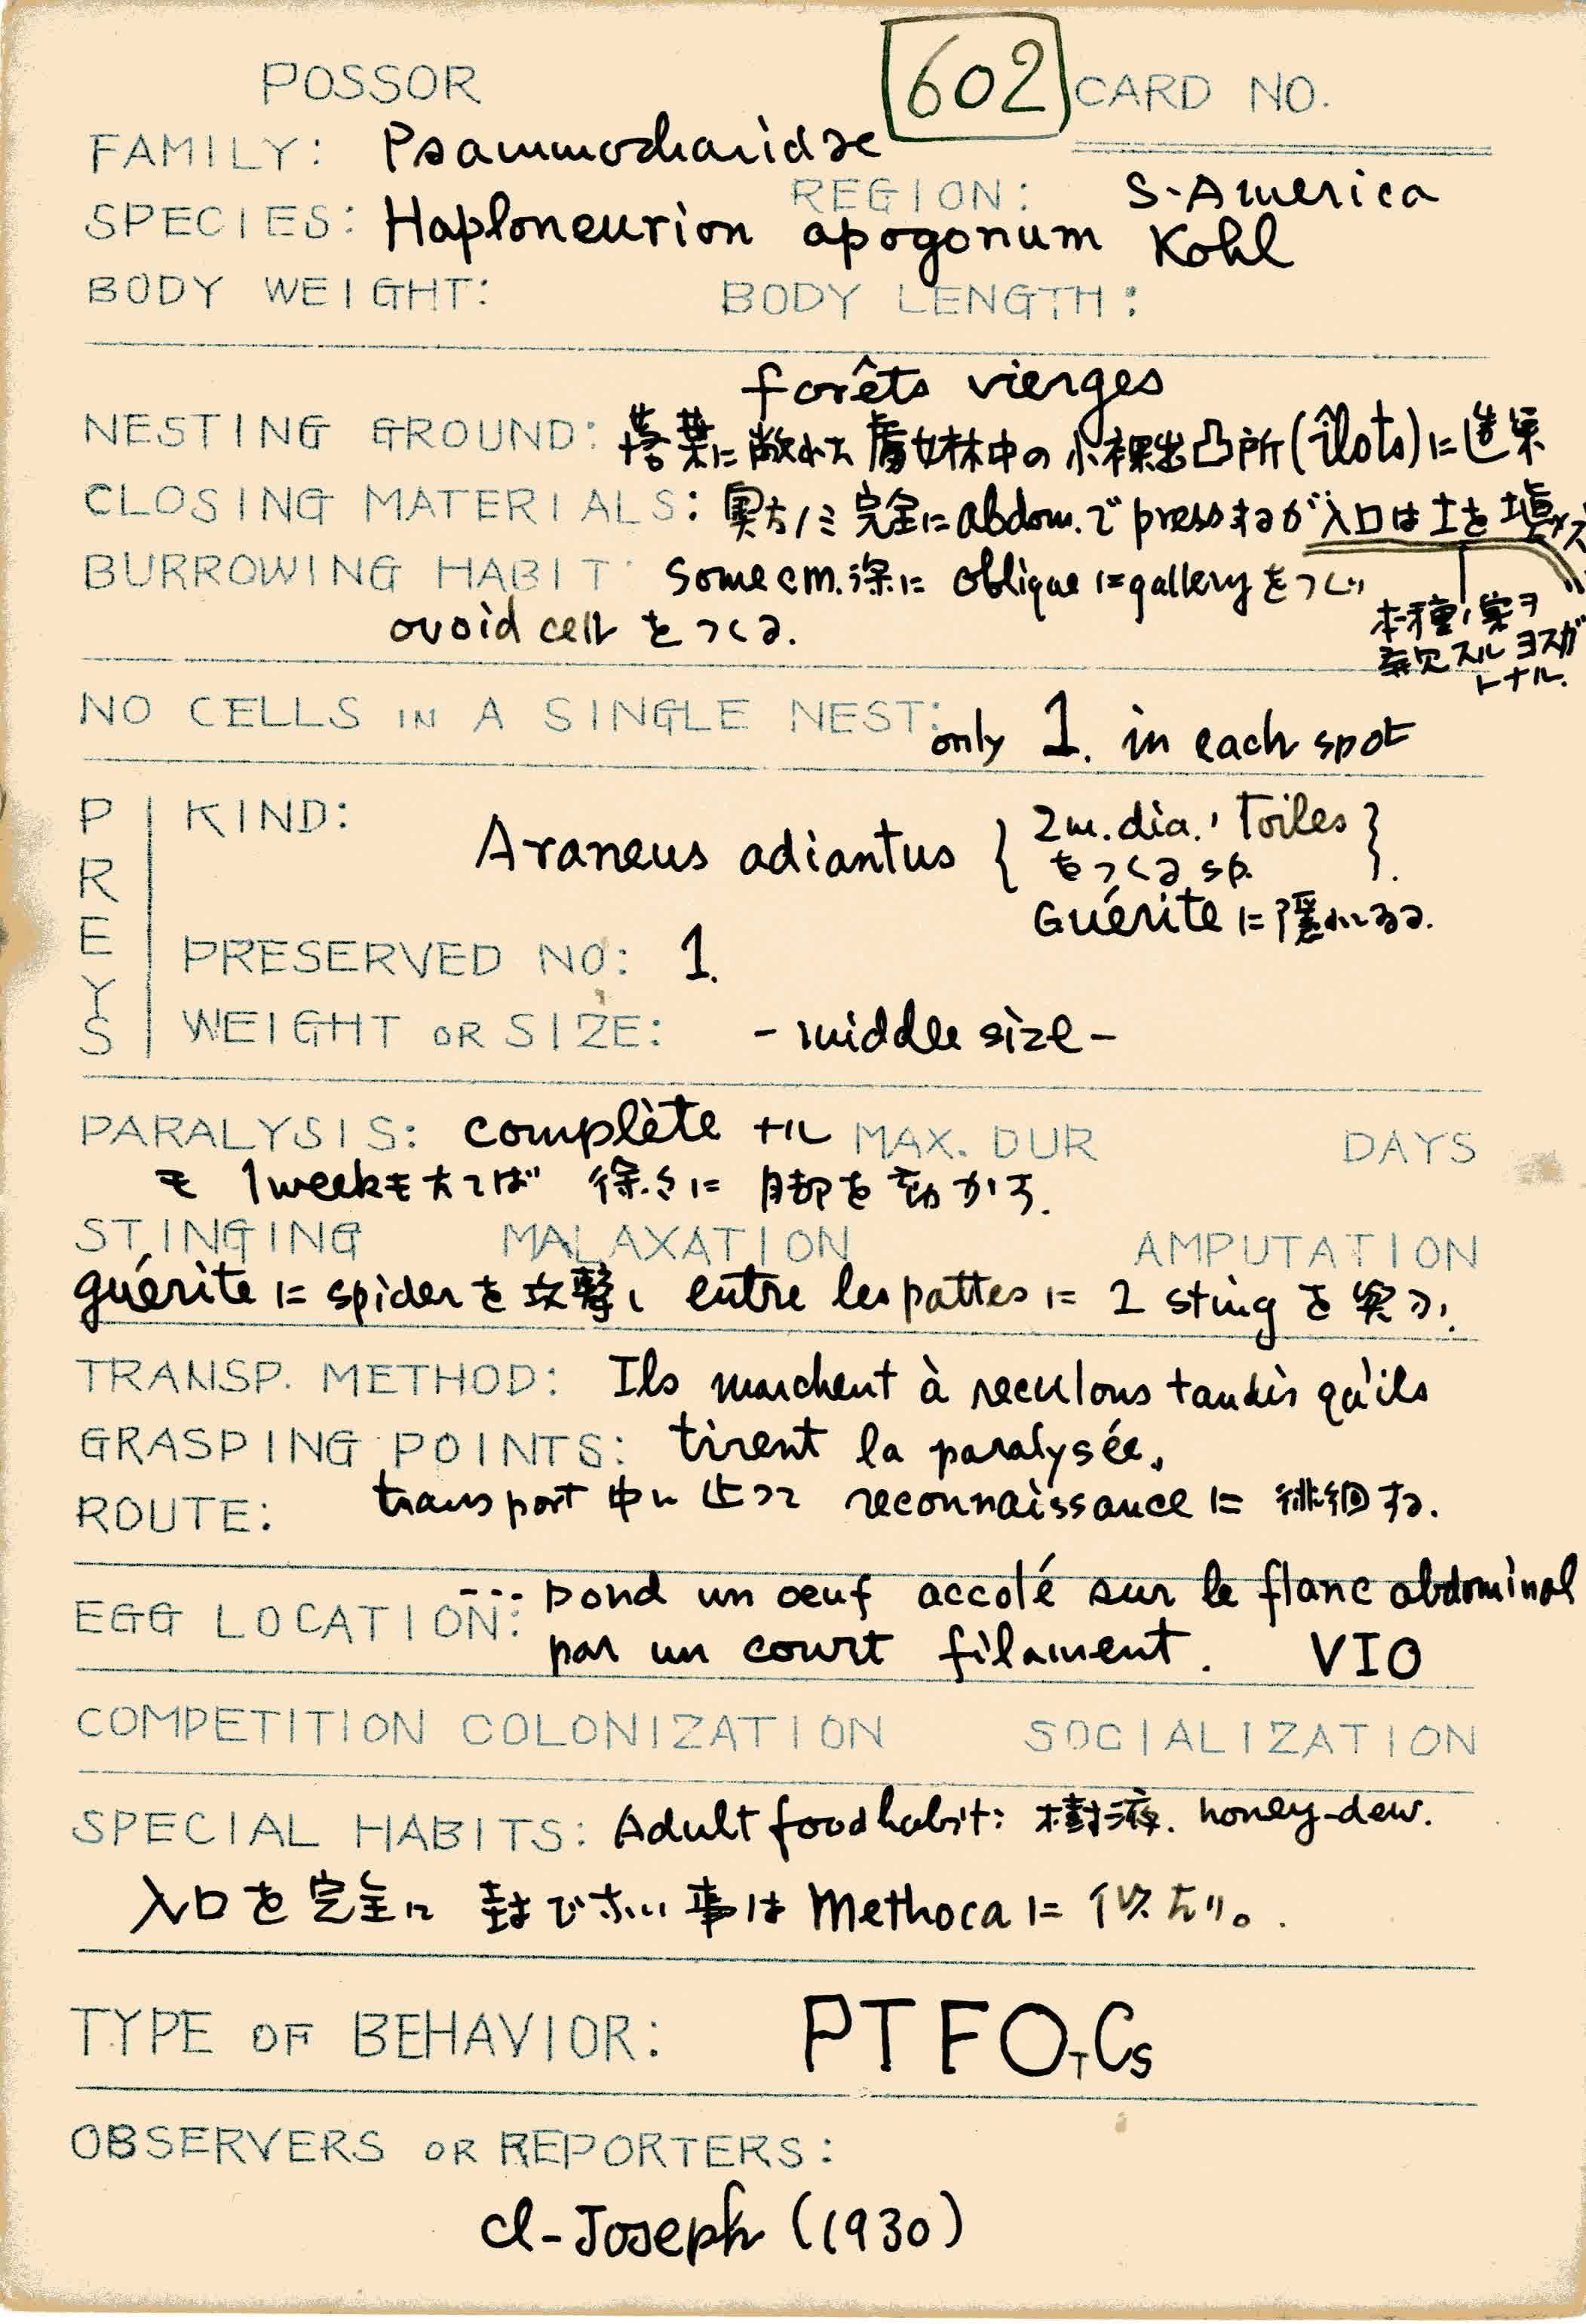 POSSOR 602 CARD NO.
FAMILY: Psammocharidae
REGION: S-America
SPECIES: Haploneurion apogonum Kohl
BODY WEIGHT: BODY LENGTH:
forêts vierges
NESTING GROUND: 落葉に敝れた處女林中の小裸出凸所(îlots)に造巣
CLOSING MATERIALS: 奥方ノミ完全にabdom.でpressするが入口は土を塡メズ
BURROWING HABIT: Some cm.深に obliqueにgalleryをつくり
ovoid cell をつくる.
本種ノ巣ヲ
発見スル ヨスガ
トナル.
NO CELLS IN A SINGLE NEST: only 1. in each spot
PREYS
KIND: Araneus adiantus { 2m. dia.ノ Toiles
をつくる sp. }.
Guériteに隠れゐる.
PRESERVED NO: 1.
WEIGHT OR SIZE: - middle size -
PARALYSIS: complète ナル MAX. DUR DAYS
モ 1weekもたてば 徐々に 脚部を動かす.
STINGING MALAXATION AMPUTATION
guériteにspiderを攻撃し entre les pattesに 2 stingを突く.
TRANSP. METHOD: Ils marchent à reculons tandis qu'ils
GRASPING POINTS: tirent la paralysée.
ROUTE: transport 中に 止って reconnaissanceに 徘徊する.
EGG LOCATION: --- pond un oeuf accolé sur le flanc abdominal
par un court filament. VIO
COMPETITION COLONIZATION SOCIALIZATION
SPECIAL HABITS: Adult food habit: 樹液. honey-dew.
入口を完全に 封じない事は Methocaに 似たり。.
TYPE OF BEHAVIOR: PTFOTCs
OBSERVERS OR REPORTERS:
Cl-Joseph (1930)